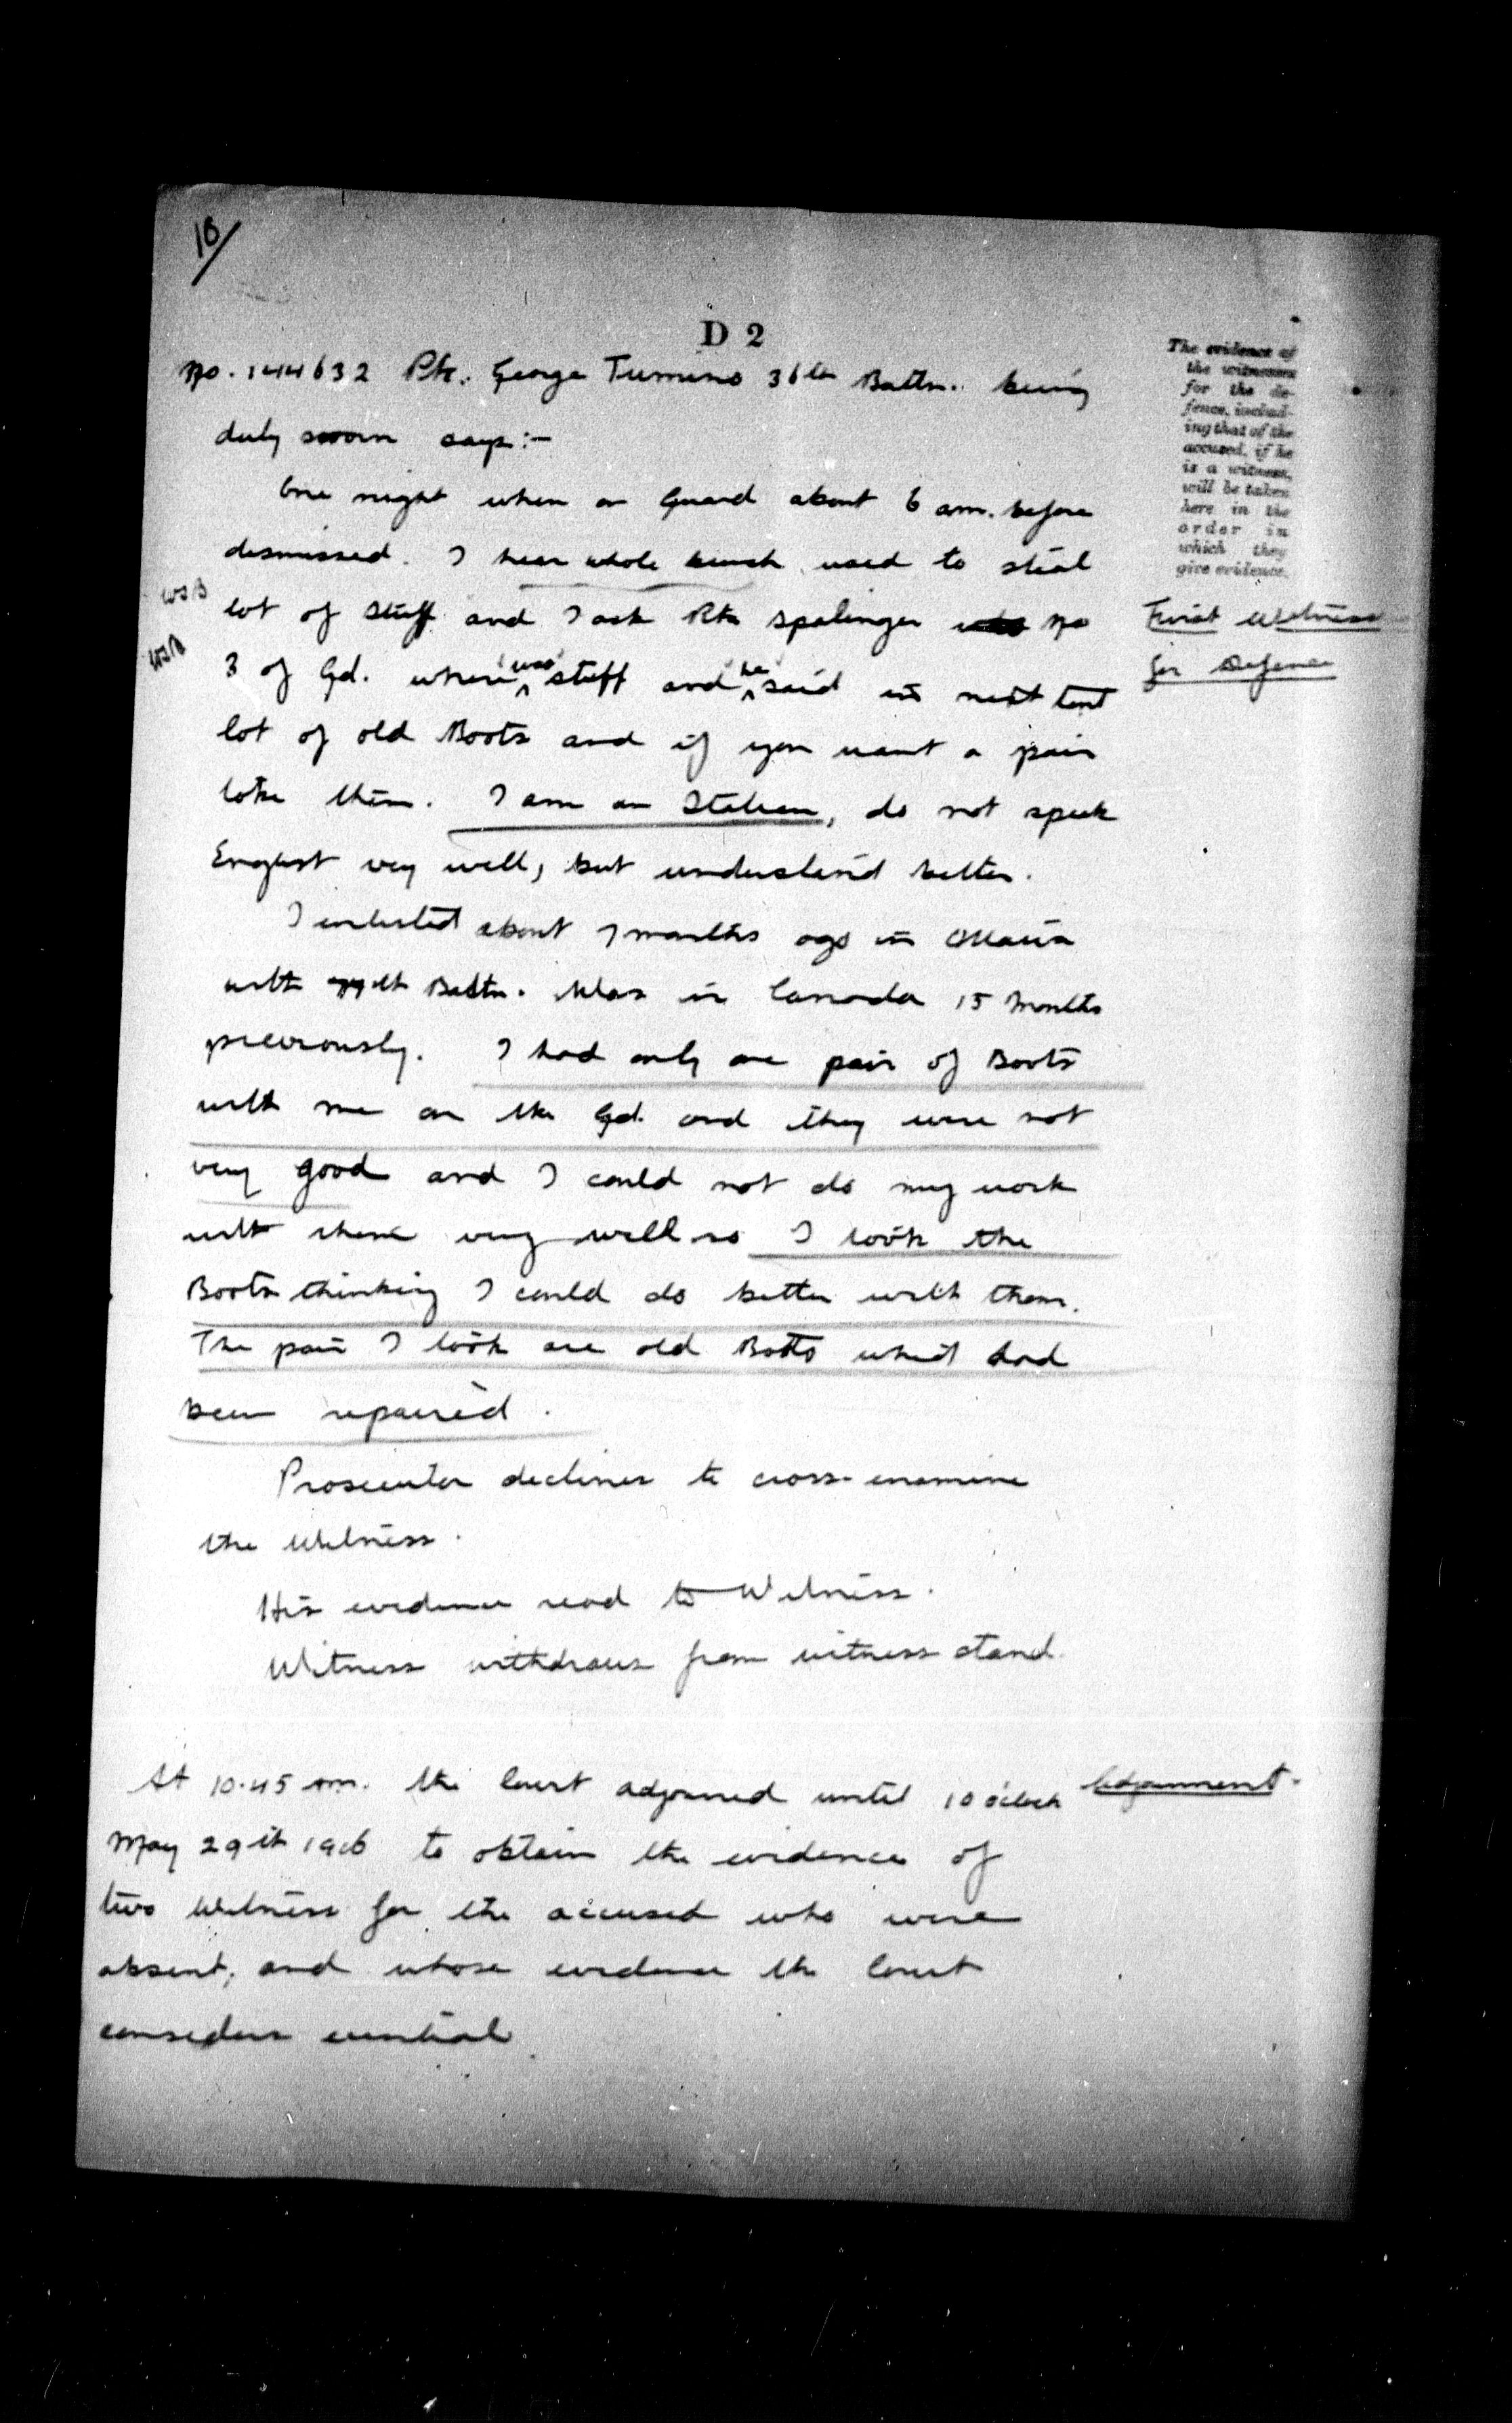 10/
D 2
No. 144632 Pte. George Tumino 36th Battn. being
duly sworn says:-
One night when on Guard about 6 am. before
dismissed. I hear whole bunch used to steal
lot of stuff and I ask Pte Spalinger No
3 of Gd. where was stuff and he said in next tent
lot of old Boots and if you want a pair
take them. I am an Italian, do not speak
English very well, but understand better.
I enlisted about 7 months ago in Ottawa
with 77th Battn. Was in Canada 15 months
previously. I had only one pair of Boots
with me on the Gd. and they were not
very good and I could not do my work
with them very well so I took the
Boots thinking I could do better with them.
The pair I took are old Boots which had
been repaired.
Prosecutor declines to cross-examine
the Witness.
His evidence read to Witness.
Witness withdraws from witness stand.
At 10.45 am. the Court adjourned until 10 o'clock
May 29th 1916 to obtain the evidence of
two Witness for the accused who were
absent, and whose evidence the Court
considers essential
The evidence of
the witnesses
for the de-
fence, includ-
ing that of the
accused, if he
is a witness,
will be taken
here in the
order in
which they
give evidence.
First Witness
for Defence
Adjournment.
WSB
WSB